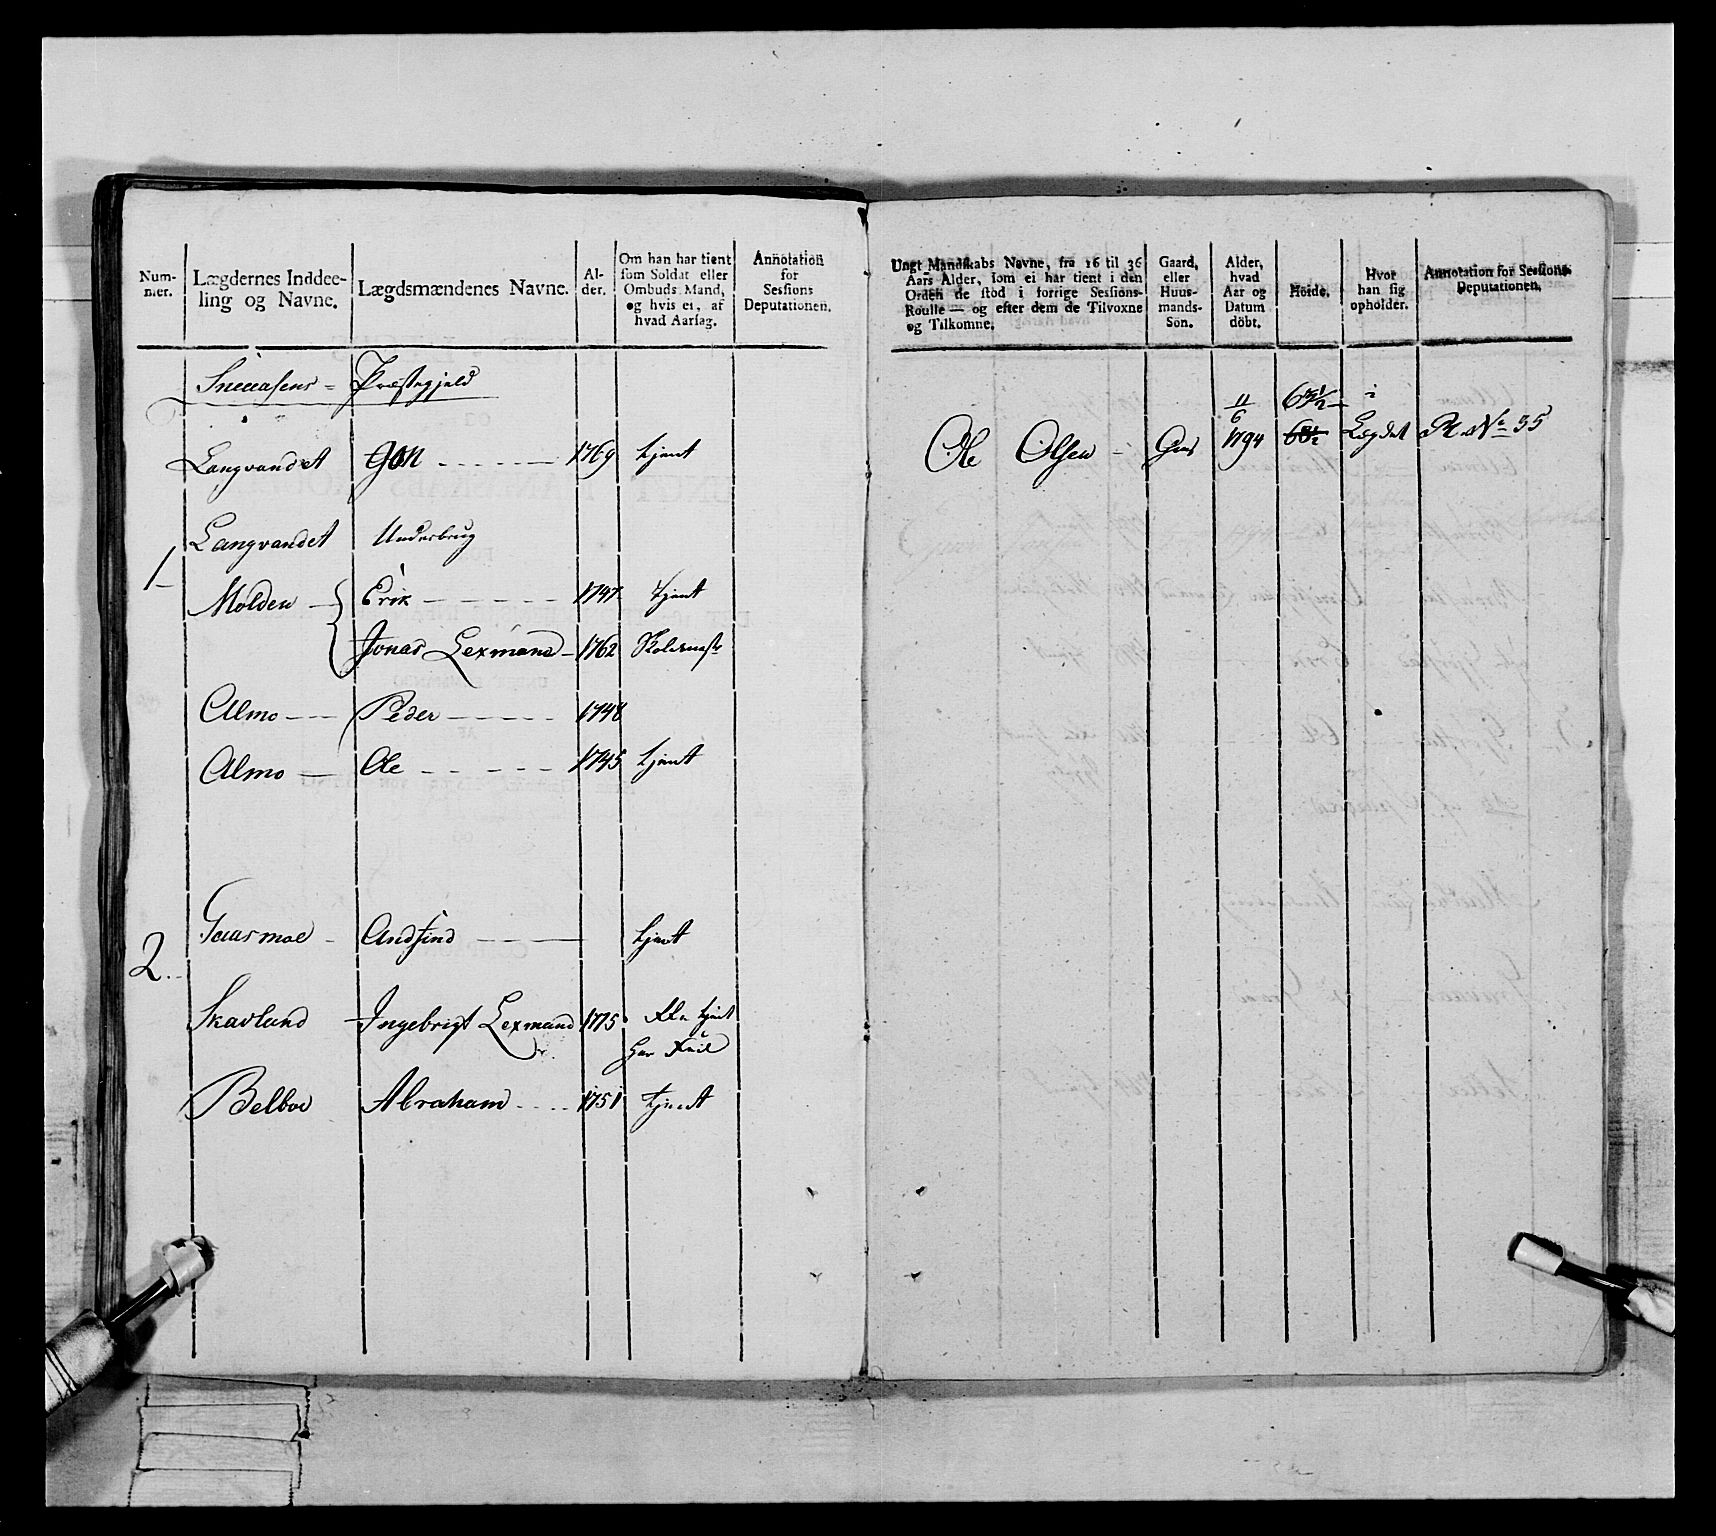 Num-
mer.
Lægdernes Inddee-
ling og Navne.
Lægdsmændenes Navne.
Al-
der.
Om han har tient
som Soldat eller
Ombuds Mand,
og hvis ei, af
hvad Aarsag.
Annotation
for
Sessions
Deputationen.
Sneeasens - Præstegjeld
Langvandet Jon 1769 tjent
Langvandet Underbrug
1
Molden Erik 1747 tjent
Jonas Lexmand 1762 Skolemestr
Almo Peder 1748
Almo Ole 1745 tjent
2.
Gaasmoe Andfind tjent
Skavland Ingebrigt Lexmand 1775 tjent
har
Belboe Abraham 1751 tjent
Ungt Mandskabs Navne, fra 16 til 36
Aars Alder, som ei har tient i den
Orden de stod i forrige Sessions-
Roulle — og efter dem de Tilvoxne
og Tilkomne.
Gaard,
eller
Huus-
mands-
Søn.
Alder,
hvad
Aar og
Datum
döbt.
Höide.
Hvor
han sig
opholder.
Annotation for Sessions-
Deputationen.
11 63½ i
6
Ole Olsen - 1794 Lægdet R. No 35